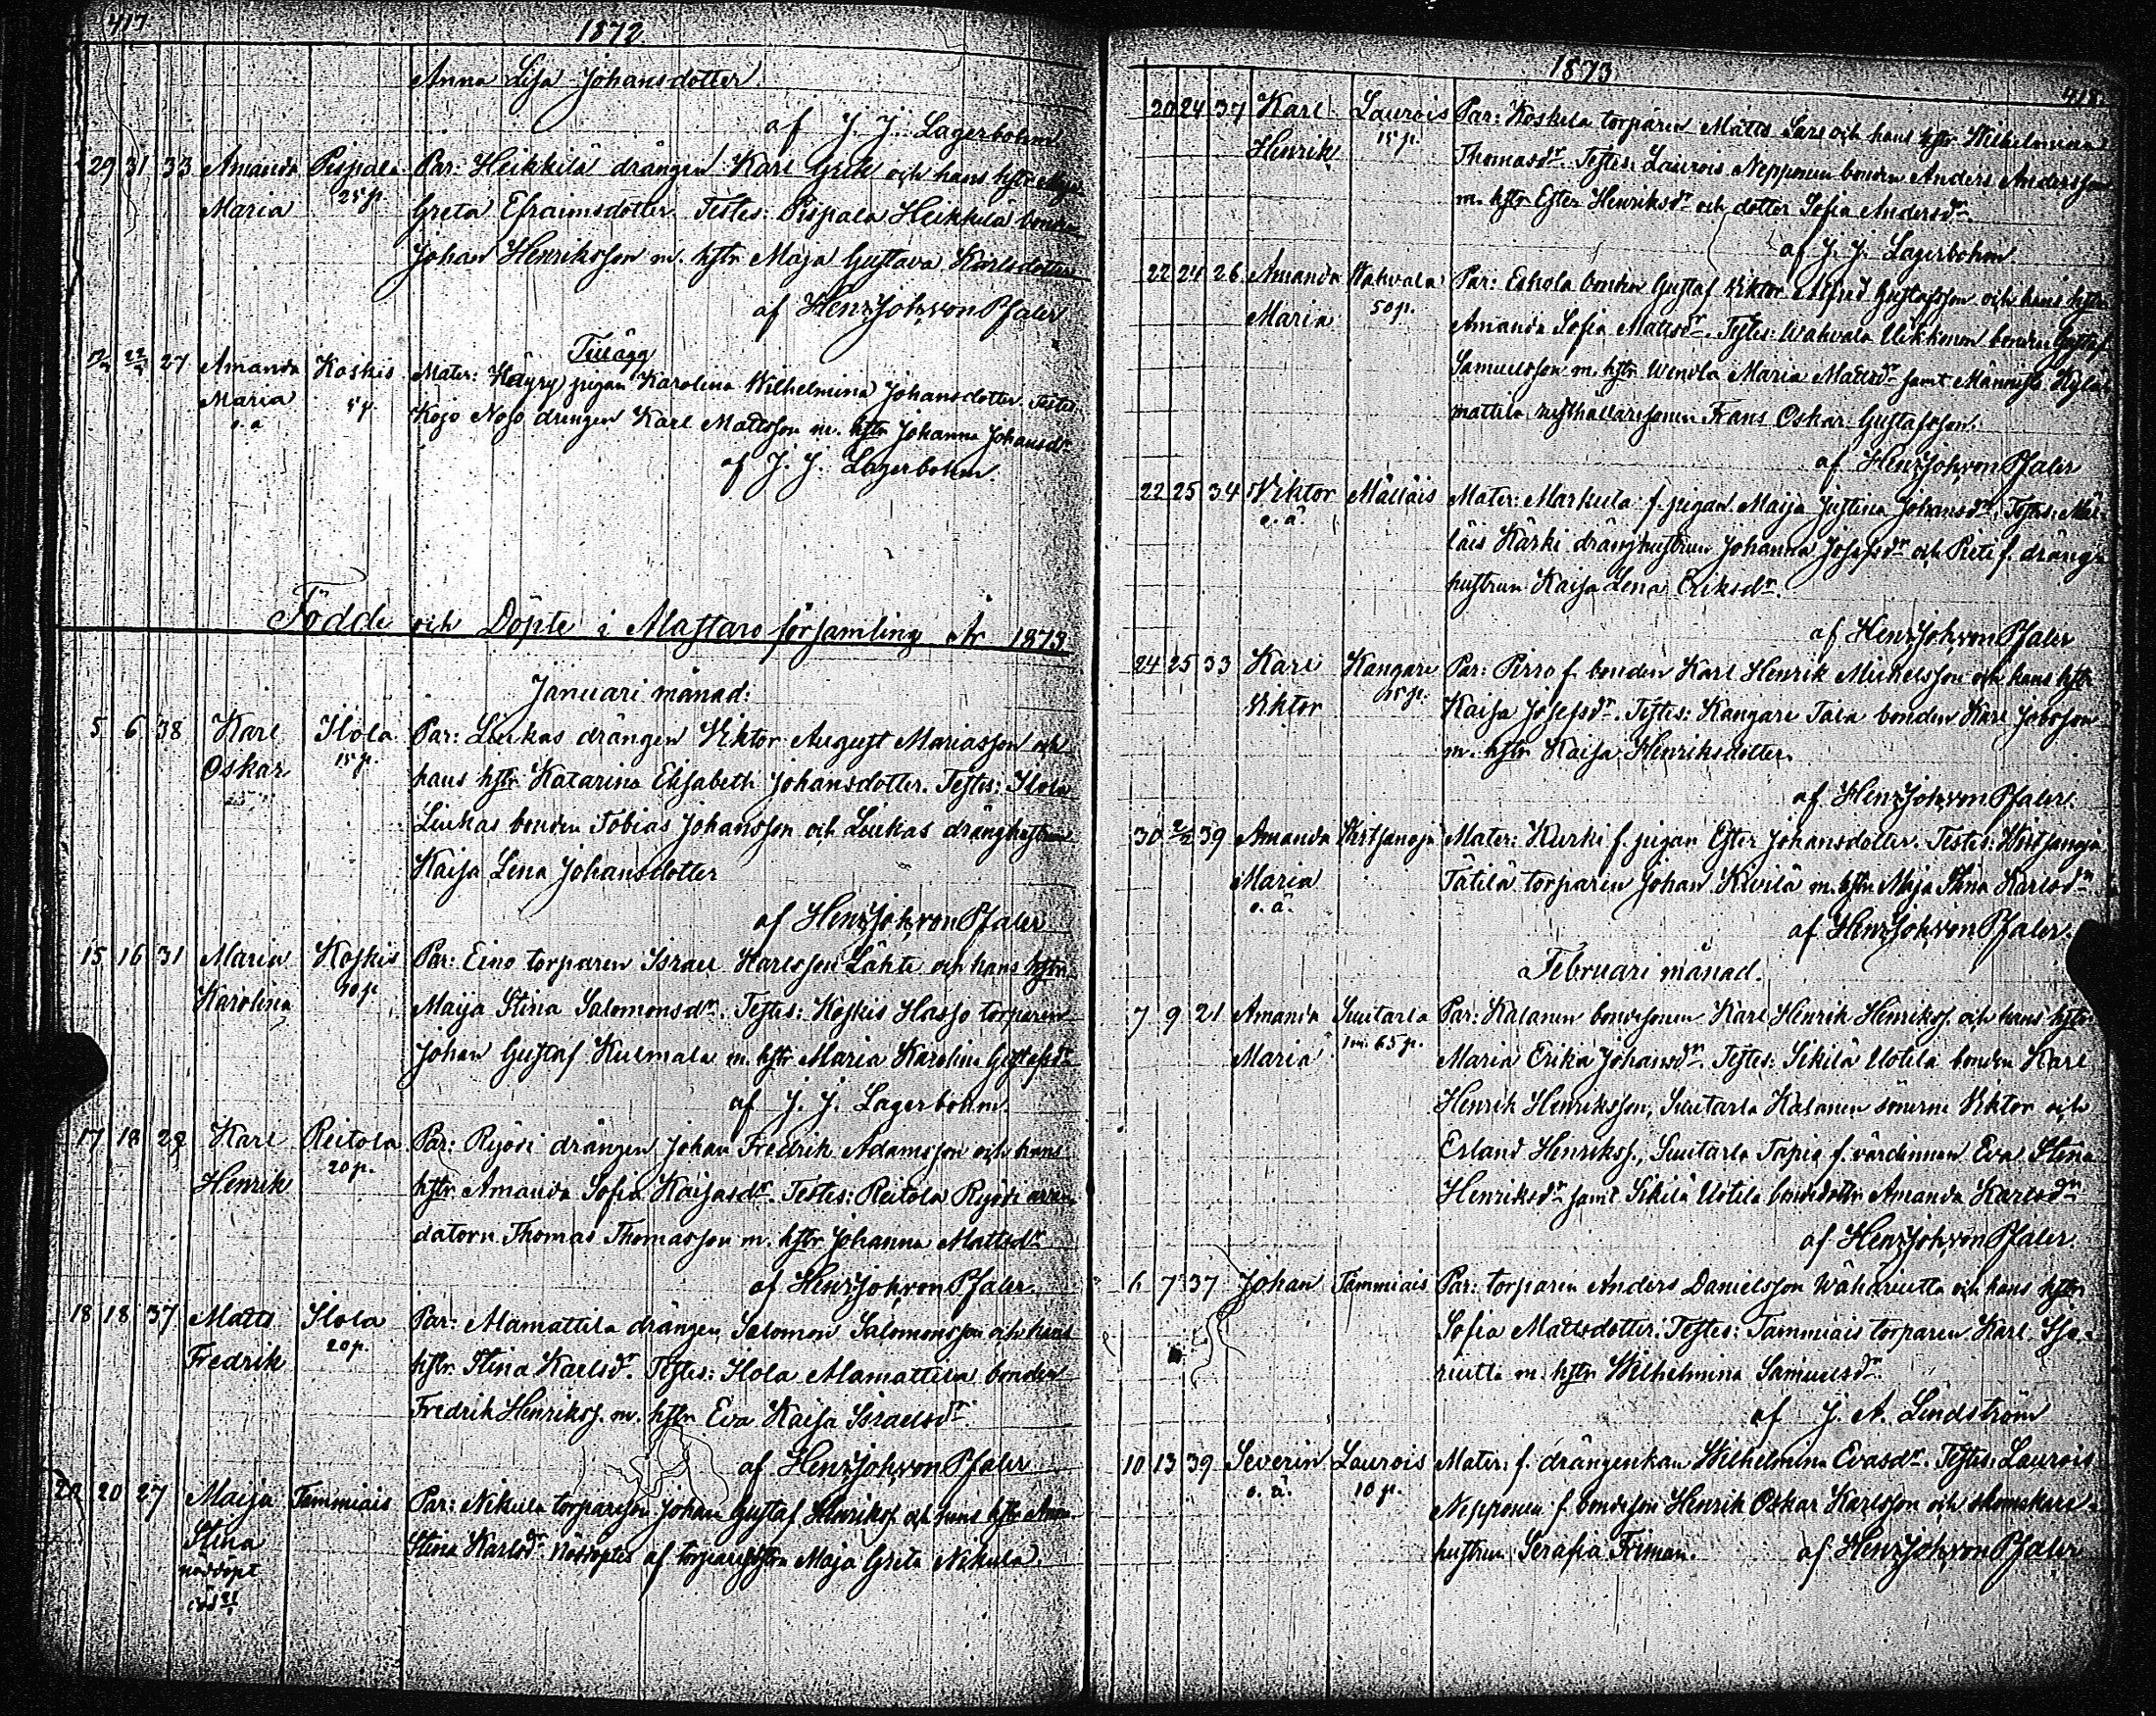 417
1872
Anna Lisa Johansdotter.
af J. J. Lagerbohm.
29 31 33 Amanda Pispala Par: Heikkilä drängen Karl Grek och hans hstr Maja
Maria 25 p. Greta Efraimsdotter. Testes: Pispala Heikkilä bonden
Johan Henriksson m. hstr Maja Gustava Karlsdotter
af Henr Joh von Pfaler
Tillägg
27 Amanda Koskis Mater: Käyry pigan Karolina Wilhelmina Johansdotter. Testes:
Maria Kojo Nojo drängen Karl Mattsson m. hstr Johanna Johansdr
o. ä. af J. J. Lagerbohm.
Födde och Döpte i Mastaro församling År 1873.
Januari månad:
5 6 38 Karl Ilola Par: Liukas drängen Viktor August Mariasson och
Oskar 15 p. hans hstr Katarina Elisabeth Johansdotter. Testes: Ilola
Liukas bonden Tobias Johansson och Liukas dränghustrun
Kaisa Lena Johansdotter
af Henr Joh von Pfaler
15 16 31 Maria Koskis Par: Eino torparen Israel Karlsson Lähte och hans hstru
Karolina 40 p. Maija Stina Salomonsdr. Testes: Koskis Hasso torparen
Johan Gustaf Kulmala m. hstr Maria Karolina Gustafsdr
af J. J. Lagerbohm.
17 18 29 Karl Reitola Par: Ryösi drängen Johan Fredrik Adamsson och hans
Henrik 20 p. hstr Amanda Sofia Kaisasdr. Testes: Reitola Ryösi arren
datorn Thomas Thomasson m. hstr Johanna Mattsdr
af Henr Joh von Pfaler.
18 18 37 Matts Ilola Par: Alamattila drängen Salomon Salomonsson och hans
Fredrik 20 p. hstr Stina Karlsdr. Testes: Ilola Alamattila bonden
Fredrik Henrikss. m. hstr Eva Kaisa Israelsdr.
af Henr Joh von Pfaler
20 20 27 Maija Tammiais Par: Nikula torparson Johan Gustaf Henrikss och hans hstr Anna
Stina Stina Karlsdr. Nöddöptes af torparehstrn Maja Greta Nikula.
nöddöpt
1873
418.
20 24 37 Karl Laurois Par: Koskela torparen Matts Lars och hans hstr Wilhelmina
Henrik 15 p. Thomasdr. Testes: Laurois Nepponen bonden Anders Andersson
m. hstr Ester Henriksdr och dotter Sofia Andersdr.
af J. J. Lagerbohm.
22 24 26 Amanda Wahvala Par: Eskola bonden Gustaf Viktor Alfred Gustafsson och hans hstr
Maria 50 p. Amanda Sofia Mattsdr. Testes: Wahvala Uikkonen bonden Gustaf
Samuelsson m. hstr Wendla Maria Mattsdr samt Männistö Kylä
mattila rusthållaresonen Frans Oskar Gustafsson.
af Henr Joh von Pfaler
22 25 34 Viktor Mälläis Mater: Markula f. pigan Maija Justina Johansdr. Testes: Mäl-
o. ä. läis Kärki dränghustrun Johanna Josefsdr och Pieti f. drängs
hustrun Kaisa Lena Eriksdr.
af Henr Joh von Pfaler
24 25 33 Karl Kangare Par: Pirro f. bonden Karl Henrik Mickelsson och hans hstr
Viktor 25 p. Kaisa Josefsdr. Testes: Kangare Tala bonden Karl Jobsson
m. hstr Kaisa Henriksdotter.
af Henr Joh von Pfaler.
30 2/2 39 Amanda Wirtsanoja Mater: Kurki f. pigan Ester Johansdotter. Testes: Wirtsanoja
Maria Tätilä torparen Johan Kivilä m. hstr Maja Stina Karlsdr
o. ä. af Henr Joh von Pfaler.
Februari månad.
7 9 21 Amanda Suutarla Par: Kalanen bondesonen Karl Henrik Henrikss. och hans hstr
Maria 1 m. 65 p. Maria Erika Johansdr. Testes: Sikilä Uotila bonden Karl
Henrik Henriksson, Suutarla Kalanen sönerne Viktor och
Erland Henrikss., Suutarla Tapia f. värdinnan Eva Stina
Henriksdr samt Sikilä Uotila bondedottr Amanda Karlsdr
af Henr Joh von Pfaler.
6 7 37 Johan Tammiais Par: torparen Anders Danielsson Wähäruutta och hans hstr
Sofia Mattsdotter. Testes: Tammiais torparen Karl Iso-
ruutta m. hstr Wilhelmina Samuelsdr
af J. A. Lindström
10 13 39 Severin Laurois Mater: f. drängenkan Wilhelmina Evasdr. Testes: Laurois
o. ä. 10 p. Nepponen f. bondeson Henrik Oskar Karlsson och skomakare-
hustrun Serafia Friman. af Henr Joh von Pfaler